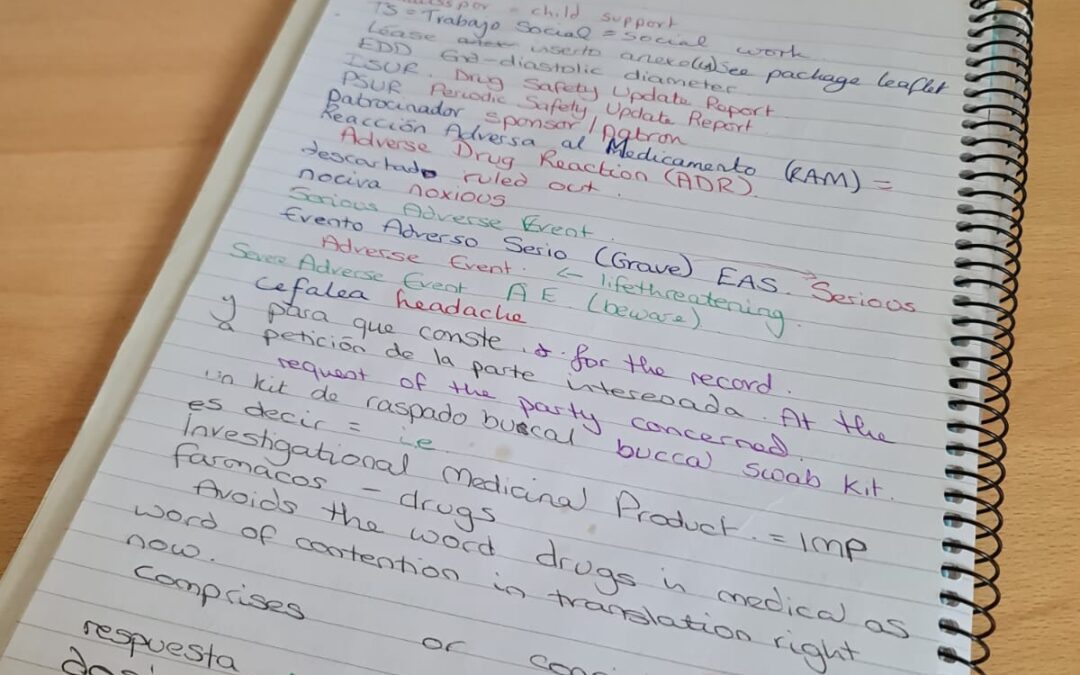 = child support
TS = Trabajo Social = Social work
Léase inserto anexo(u) See package leaflet
EDD End-diastolic diameter
ISUR. Drug Safety Update Report
PSUR Periodic Safety Update Report
Patrocinador sponsor / patron
Reacción Adversa al Medicamento (RAM) =
Adverse Drug Reaction (ADR).
descartado ruled out.
nociva noxious
Serious Adverse Event.
Evento Adverso Serio (Grave) EAS. Serious
Adverse Event. ← lifethreatening.
Severe Adverse Event AE (beware)
Cefalea headache
y para que conste for the record.
a petición de la parte interesada. At the
request of the party concerned.
un kit de raspado buccal buccal swab kit.
es decir = i.e
Investigational Medicinal Product. = IMP
farmacos - drugs
Avoids the word drugs in medical as
word of contention in translation right
now.
comprises or
respuesta